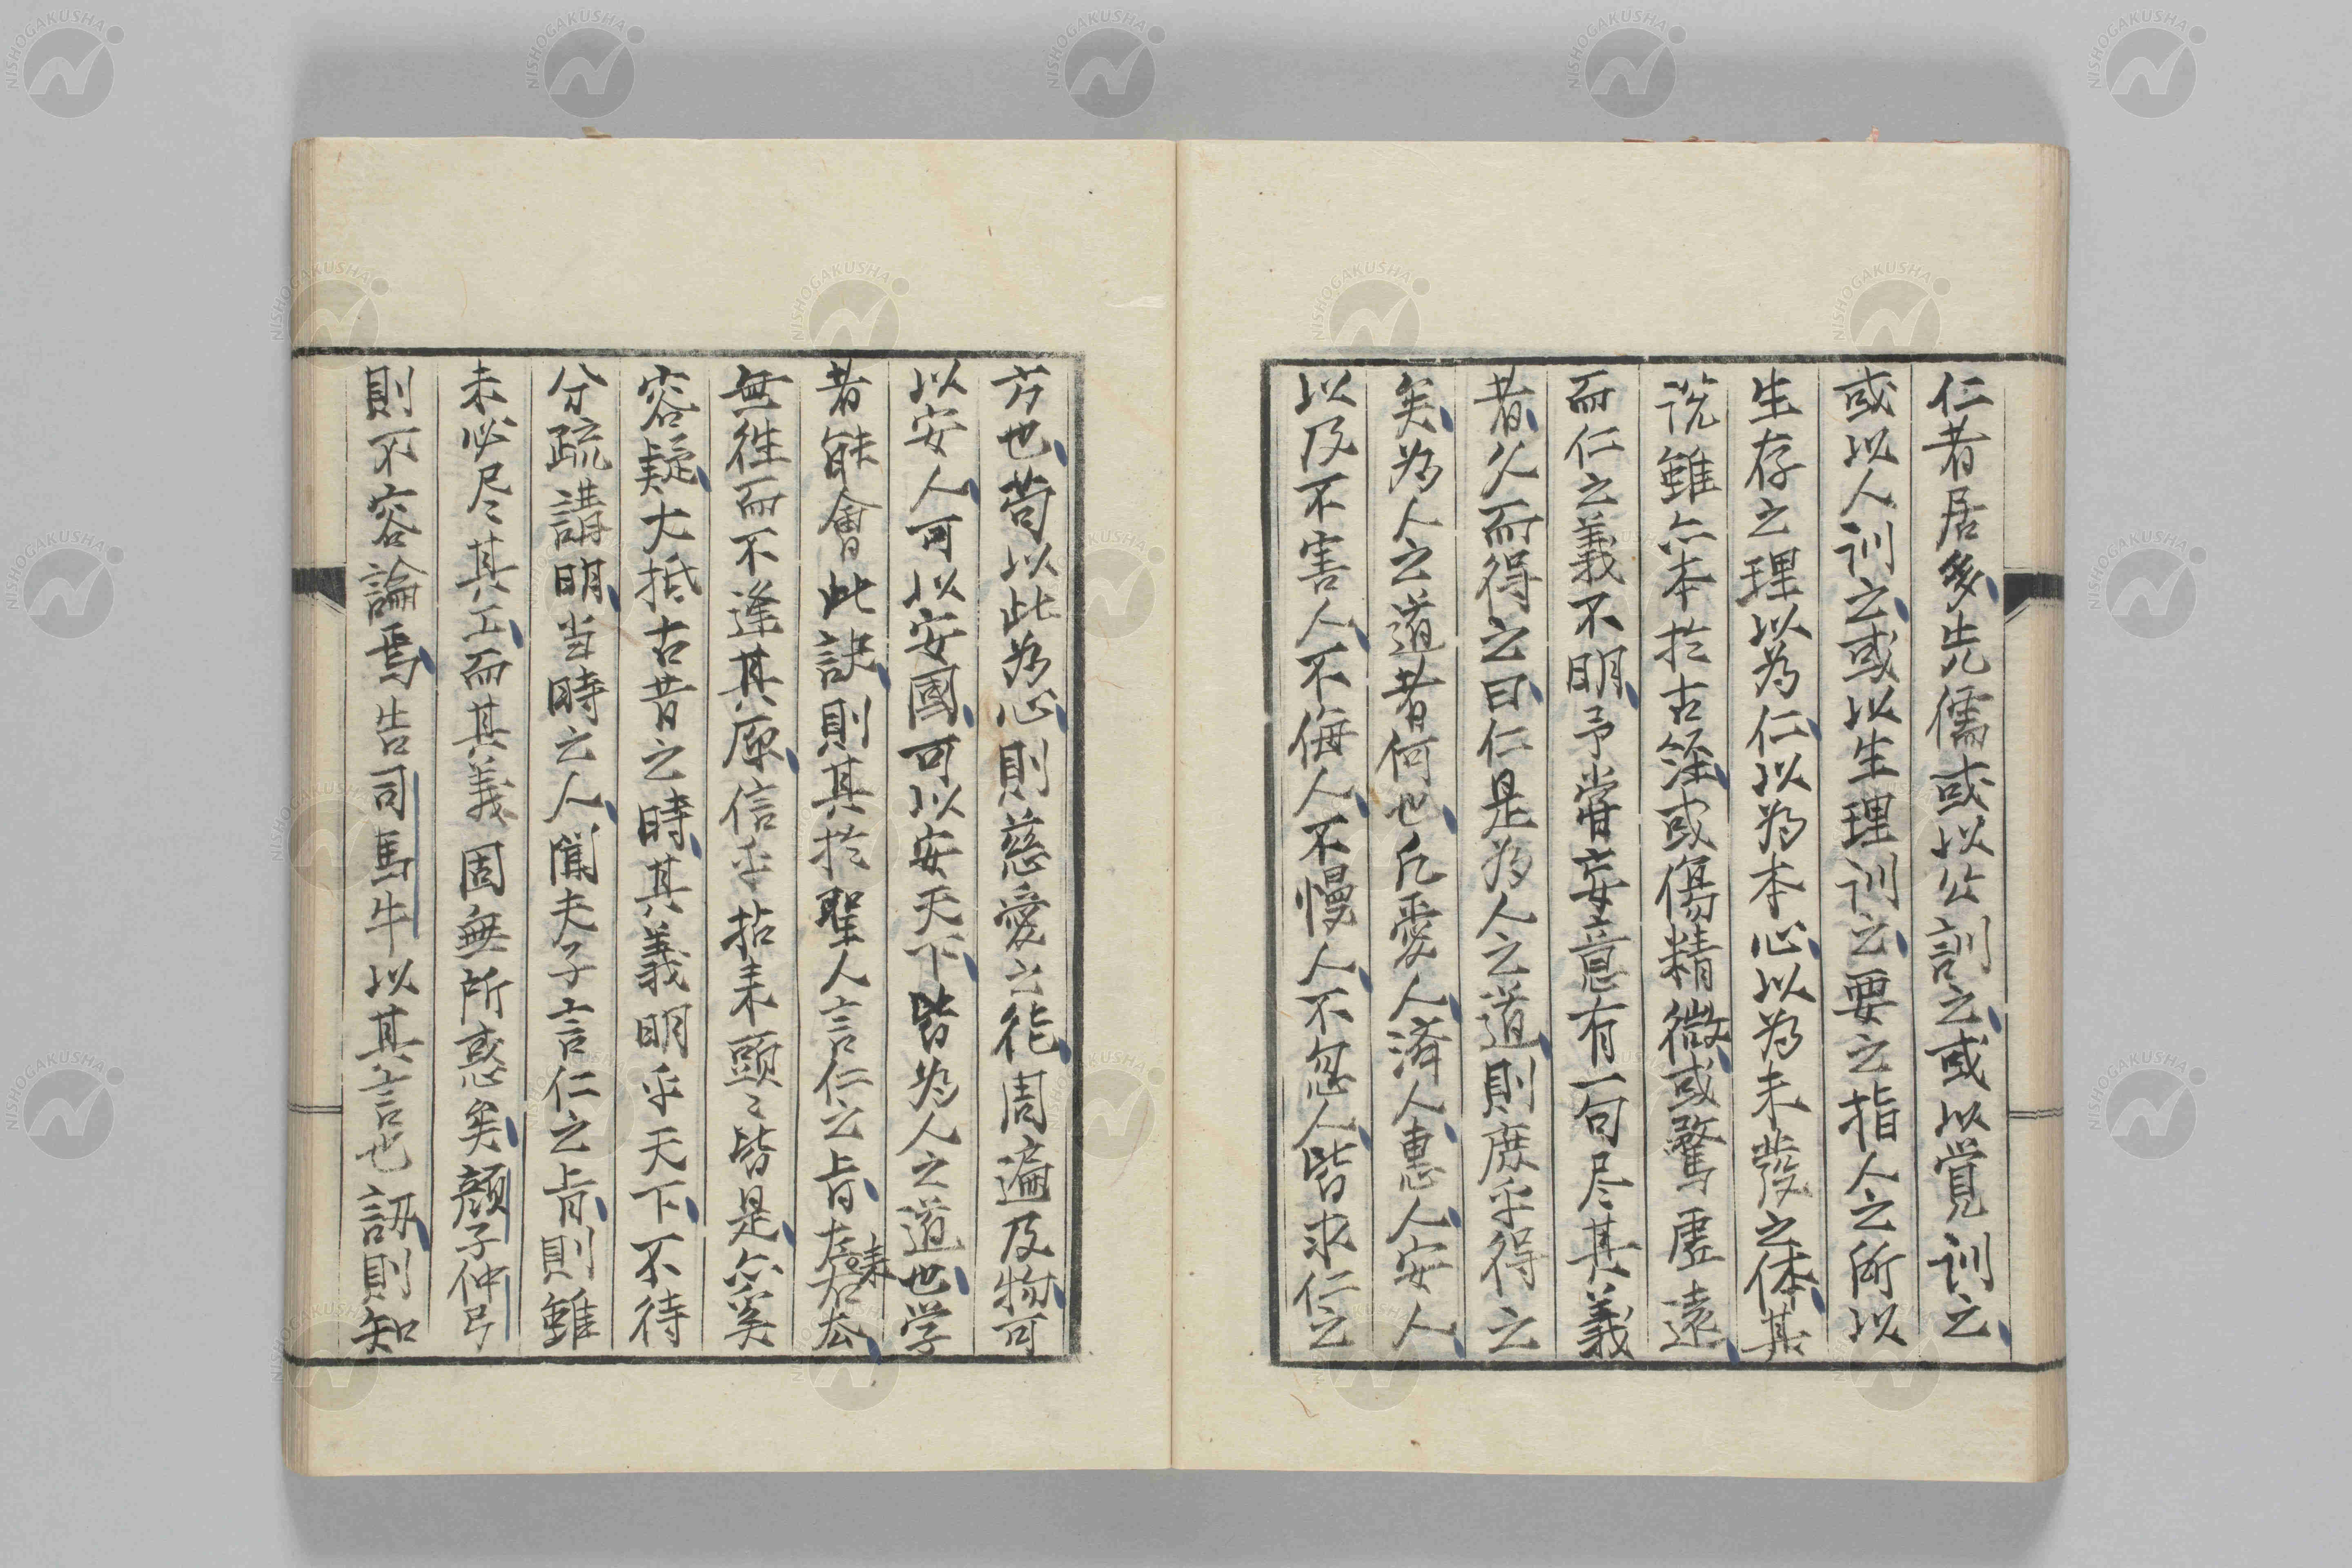 仁者居多先儒或以公訓之或以覚訓之
或以人訓之或以生理訓之要之指人之所以
生存之理以為仁以為本心以為未發之体其
説雖亦本於古経或傷精微或驚虚遠
而仁之義不明予嘗妄意有一句尽其義
者久而得之曰仁是為人之道則庶乎得之
矣為人之道者何也凡愛人済人恵人安人
以及不害人不侮人不慢人不忽人皆求仁之
方也苟以此為心則慈愛之徳周遍及物可
以安人可以安國可以安天下皆為人之道也学
者能會此訣則其於聖人言仁之旨左來右去
無往而不逢其原信乎拈来頭〻皆是亦奚
容疑大抵古昔之時其義明乎天下不待
分疏講明当時之人聞夫子言仁之旨則雖
未必尽其工而其義固無所惑矣顔子仲弓
則不容論焉告司馬牛以其言也訒則知
NISHOGAKUSHA